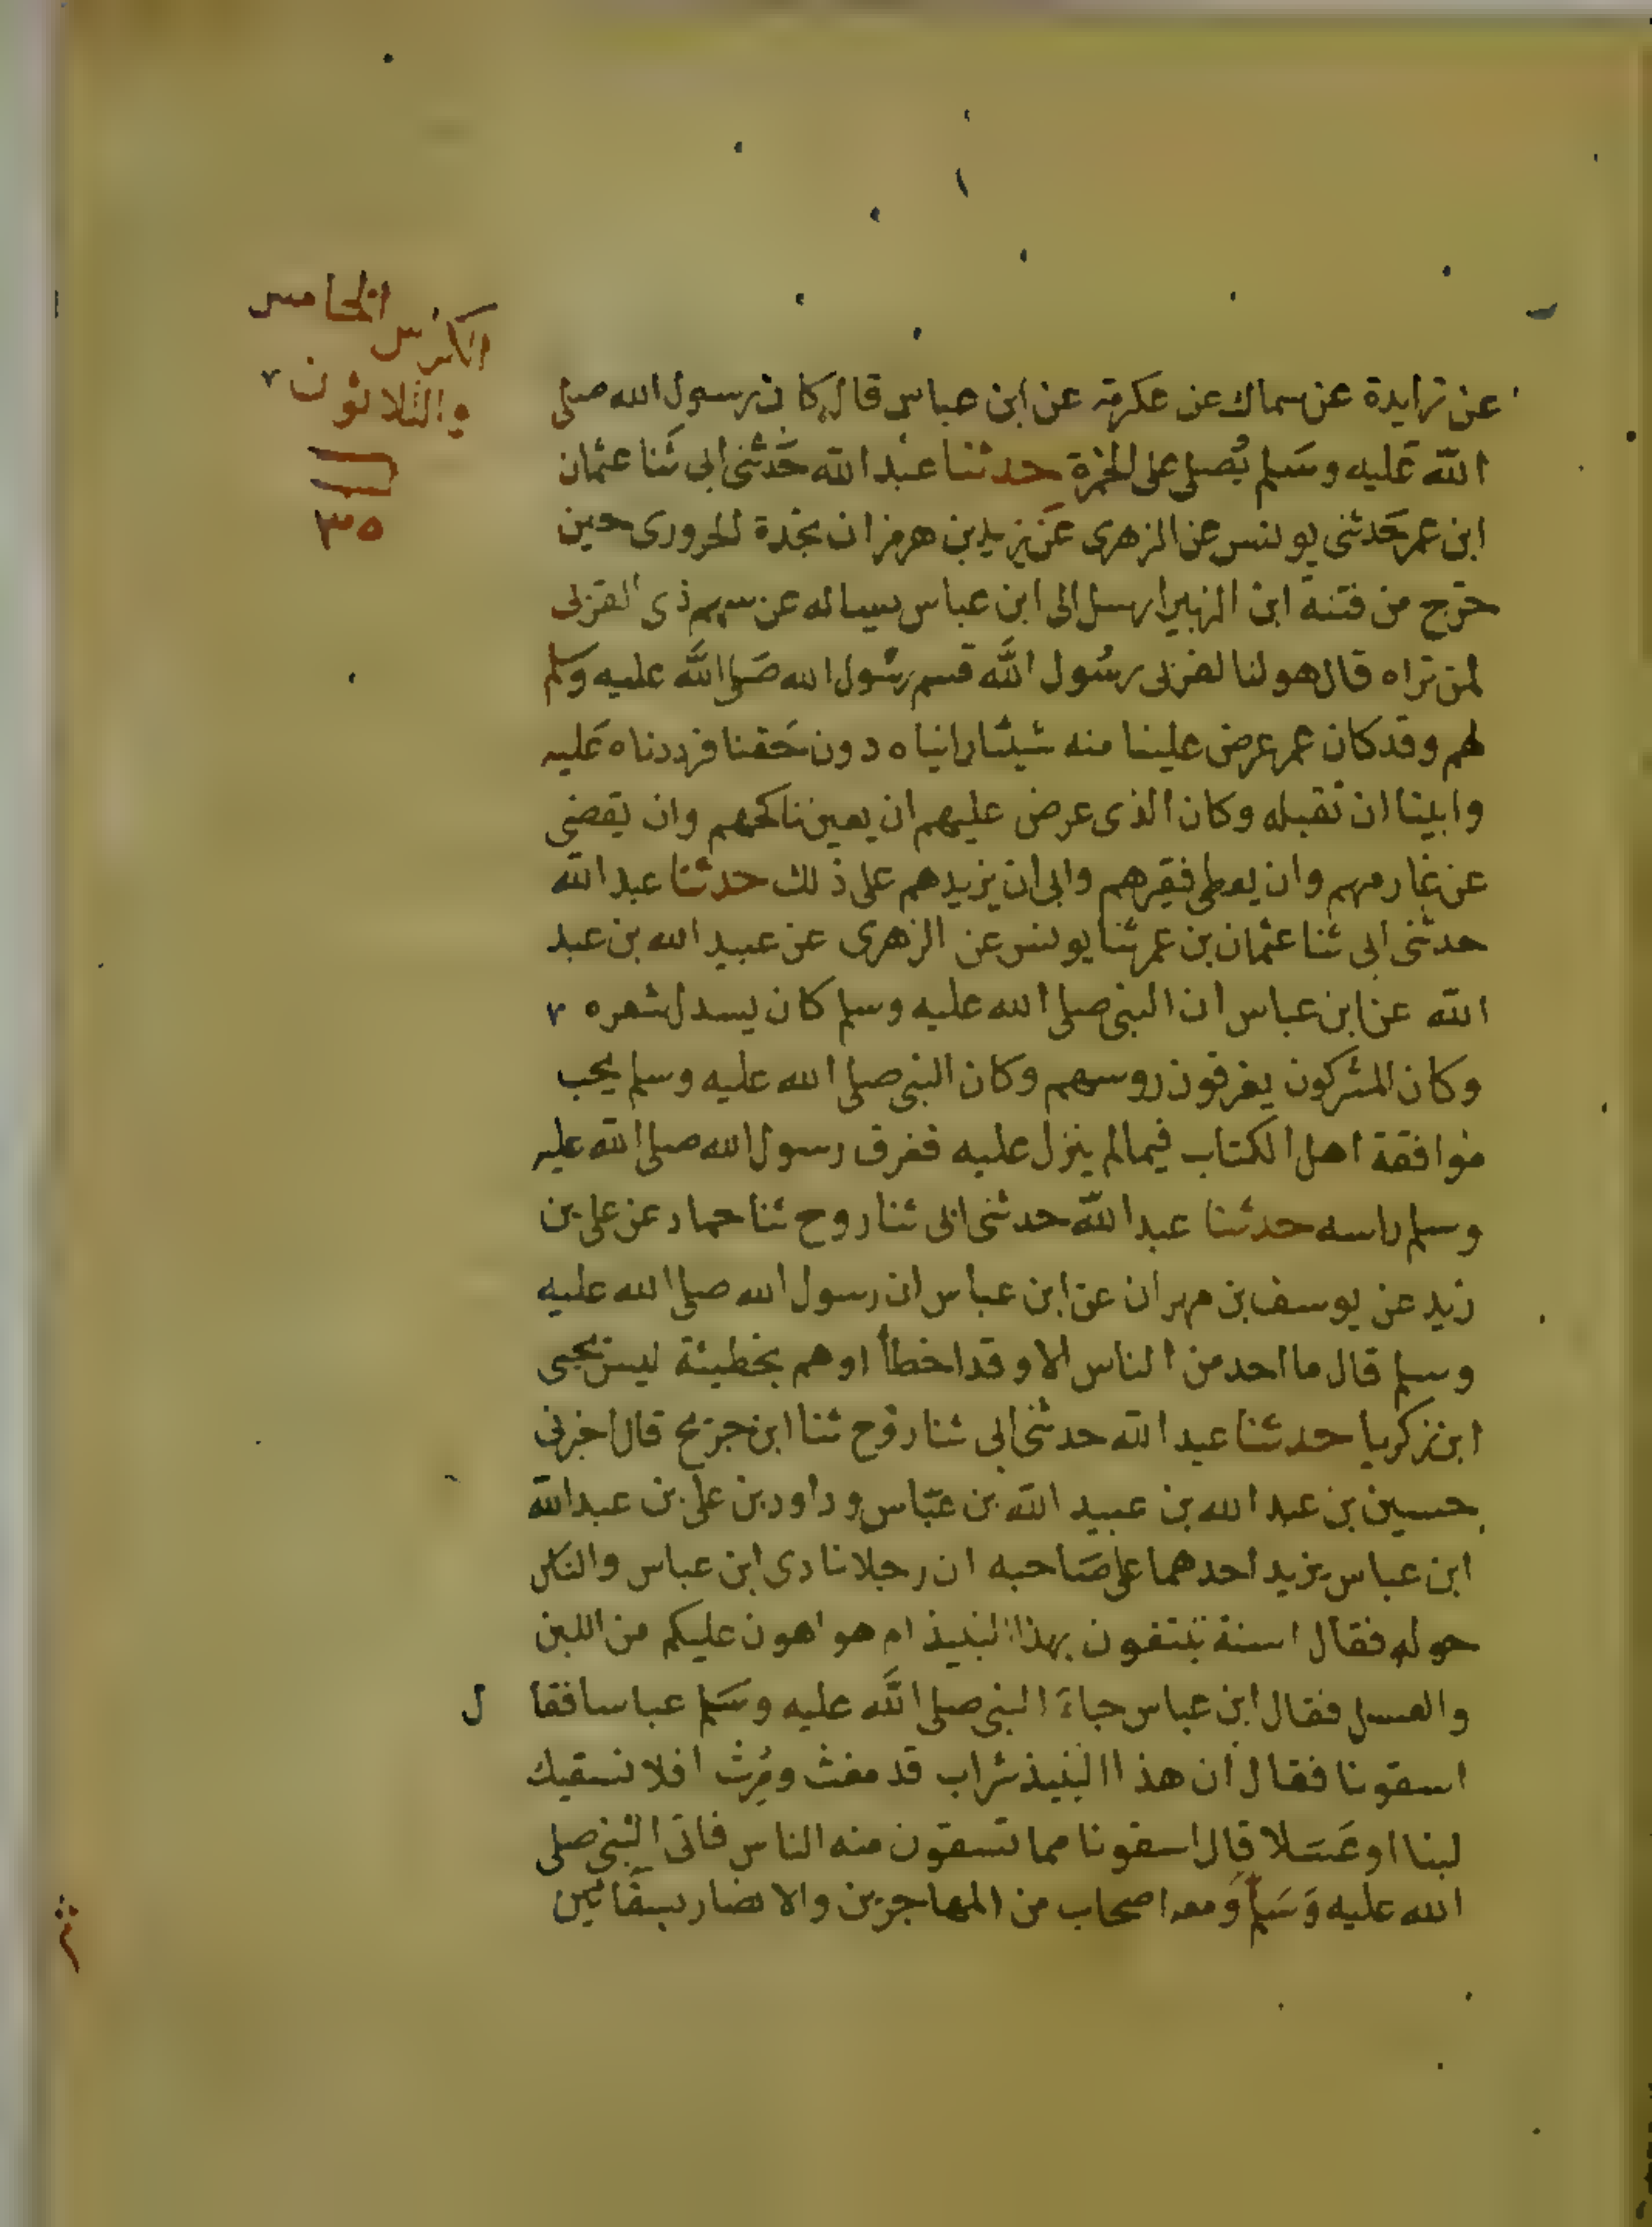 الكرس الخامس
والثلاثون
٣٥
عن زايدة عن سماك عن عكرمة عن ابن عباس قال كان رسول الله صلى
الله عليه وسلم يصلى على الخمرة حدثنا عبد الله حدثنى ابى ثنا عثمان
ابن عمر حدثنى يونس عن الزهرى عن يزيد بن هرمز ان نجدة الحرورى حين
خرج من فتنة ابن الزبير ارسل الى ابن عباس يساله عن سهم ذى القربى
لمن تراه قال هو لنا لقربى رسول الله قسم رسول الله صلى الله عليه وسلم
لهم وقد كان عمر عرض علينا منه شيئا رايناه دون حقنا فرددناه عليه
وابينا ان نقبله وكان الذى عرض عليهم ان يعين ناكحهم وان يقضى
عن غارمهم وان يعطى فقيرهم وابى ان يزيدهم على ذلك حدثنا عبد الله
حدثنى ابى ثنا عثمان بن عمر ثنا يونس عن الزهرى عن عبيد الله بن عبد
الله عن ابن عباس ان النبى صلى الله عليه وسلم كان يسدل شعره
وكان المشركون يفرقون روسهم وكان النبى صلى الله عليه وسلم يحب
موافقة اهل الكتاب فيما لم ينزل عليه ففرق رسول الله صلى الله عليه
وسلم راسه حدثنا عبد الله حدثنى ابى ثنا روح ثنا حماد عن على بن
زيد عن يوسف بن مهران عن ابن عباس ان رسول الله صلى الله عليه
وسلم قال ما احد من الناس الا وقد اخطأ او هم بخطيئة ليس يحيى
ابن زكريا حدثنا عبد الله حدثنى ابى ثنا روح ثنا ابن جريج قال اخبرنى
حسين بن عبد الله بن عبيد الله بن عباس وداود بن على بن عبد الله
ابن عباس يزيد احدهما على صاحبه ان رجلا نادى ابن عباس والناس
حوله فقال اسنة تبتغون بهذا النبيذ ام هو اهون عليكم من اللبن
والعسل فقال ابن عباس جاء النبى صلى الله عليه وسلم عباسا فقال
اسقونا فقال ان هذا النبيذ شراب قد مغث ومرث افلا نسقيك
لبنا او عسلا قال اسقونا مما تسقون منه الناس فاتى النبى صلى
الله عليه وسلم ومعه اصحاب من المهاجرين والانصار بسقائين